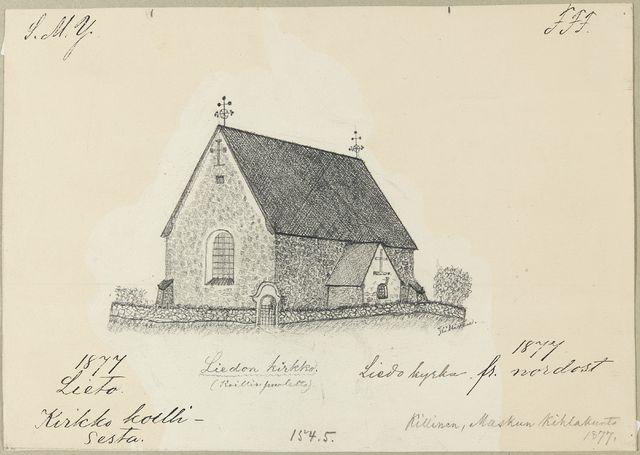 S. M. Y.
F.F.F.
1877
Lieto.
Kirkko koilli-
sesta.
Liedon kirkko.
1877
Liedo kyrka fr. nordost
154.5.
Killinen, Maskun Kihlakunta
1877.